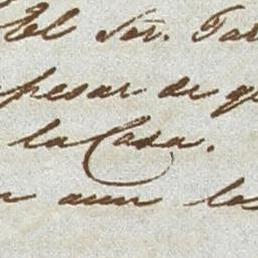 El Ser. Tar
pesar de q
la Casa.
n aun las